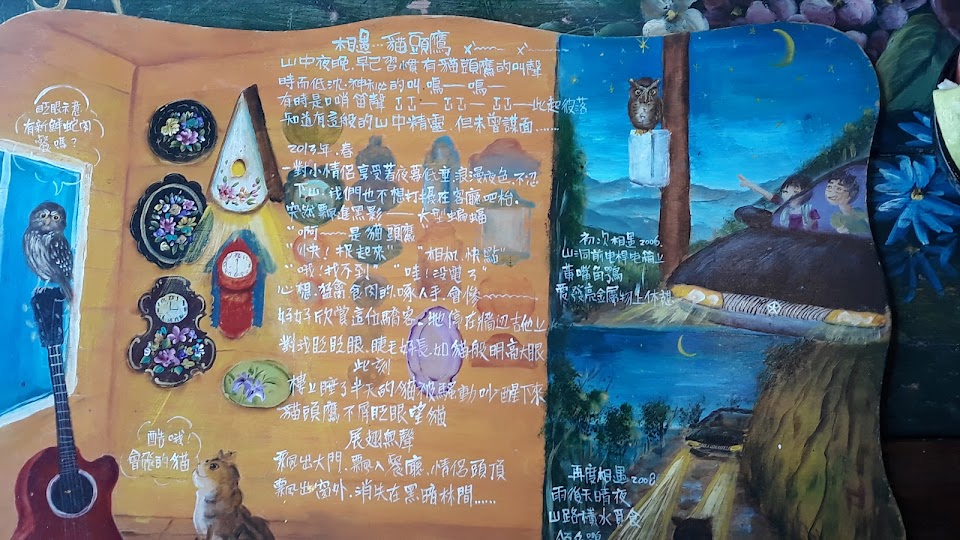 相遇…貓頭鷹
山中夜晚.早已習慣有貓頭鷹的叫聲
時而低沈.神秘的叫.嗚——嗚——
有時是口哨笛聲 ㄍㄍ—ㄍㄍ—ㄍㄍ—此起彼落
知道有這般的山中精靈.但未曾謀面……
2013年.春
一對小情侶享受著夜幕低垂浪漫夜色.不忍
下山.我們也不想打擾在客廳吧枱.
突然飄進黑影——大型蝙蝠
"啊~~是貓頭鷹
"快!捉起來" "相机快點"
"哦!找不到" "哇!沒電了"
心想.猛禽食肉的.啄人手.會像~~~~
好好欣賞這位嬌客.牠停在牆邊吉他上
對我眨眨眼.睫毛好長.如貓般明亮大眼
此刻
樓上睡了半天的貓被騷動吵醒下來
貓頭鷹不屑眨眼望貓
展翅無聲
飄出大門.飄入餐廳.情侶頭頂
飄出窗外.消失在黑暗林間……
眨眼示意
有新鮮蛇肉
餐嗎?
酷哦!
會飛的貓
初次相遇2006.
山洞前電桿電箱上
黃嘴角鴞
愛發亮金屬物上休憩
再度相遇2008
雨後天晴夜
山路橫水覓食